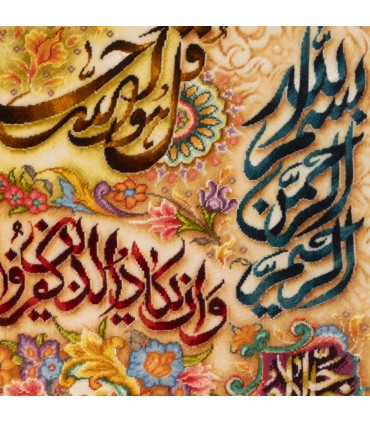 بسم الله الرحمن الرحيم
قل هو الله احد
وَاِن يَكادُ الَّذينَ كَفَرُوا